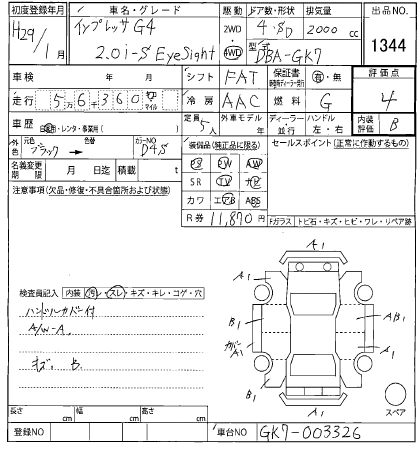 初度登録年月 車名・グレード 駆動 ドア数・形状 排気量 出品NO.
H29/1月 インプレッサ G4 2WD 4・SD 2000 cc 1344
2.0i-S EyeSight 4WD 型式 DBA-GK7
車検 年 月 シフト FAT 保証書 有・無 評価点
走行 5万6千360 キロ マイル 冷房 AAC 燃料 G 4
車歴 自家用・レンタ・事業用( ) 定員 5人 外車モデル 年 ディーラー 並行 ハンドル 左・右 内装評価 B
外色 元色 ブラック → 色替 カラーNO D4S 装備品(純正品に限る) セールスポイント(正常に作動するもの)
名義変更期限 月 日迄 積載 t PS PW AW
注意事項(欠品・修復・不具合箇所および状態) SR TV ナビ
カワ エアB ABS
R券 11,870円 Fガラス トビ石・キズ・ヒビ・ワレ・リペア跡
A1
A1 A1
検査員記入 内装 汚・スレ・キズ・キレ・コゲ・穴
ハンドルカバー付 B1 AB1
A/W-A. A1 A1
キズ、B.
B1
A1 スペア
長さ cm 幅 cm 高さ cm
登録NO 車台NO GK7-003326